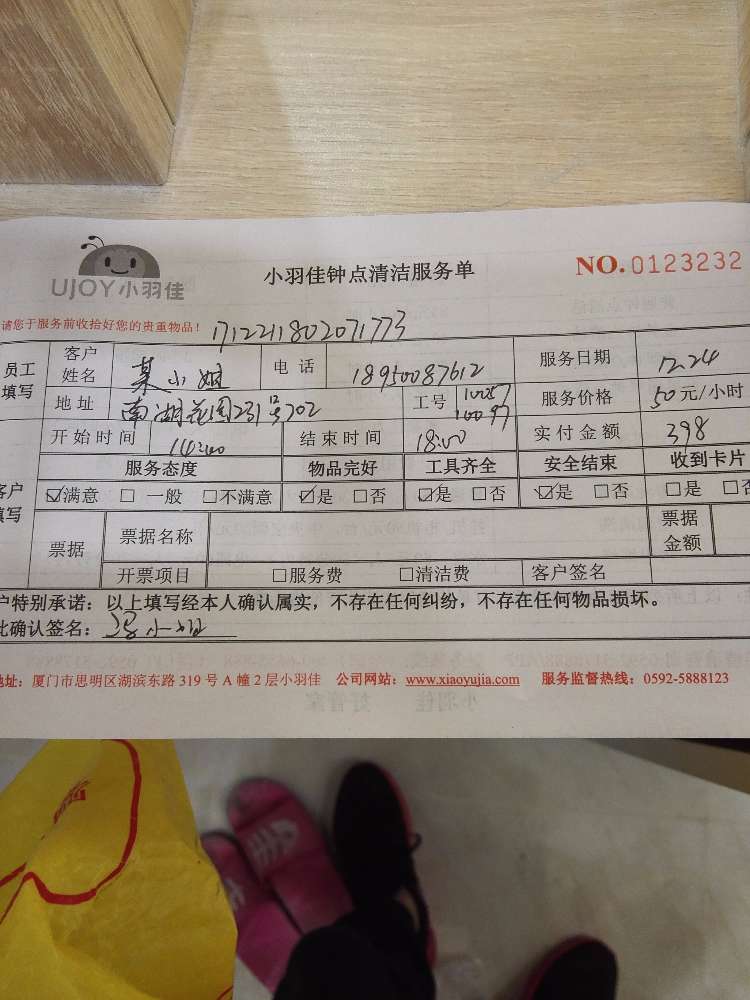 UJOY小羽佳
小羽佳钟点清洁服务单
NO.0123232
请您于服务前收拾好您的贵重物品!
171221802071773
员工填写
客户姓名 某小姐 电话 18950087612 服务日期 12.24
地址 南湖花园231号702 工号 10057 10097 服务价格 50元/小时
开始时间 14:00 结束时间 18:00 实付金额 398
客户填写
服务态度 物品完好 工具齐全 安全结束 收到卡片
☑满意 □一般 □不满意 ☑是 □否 ☑是 □否 ☑是 □否 □是 □否
票据 票据名称 票据金额
开票项目 □服务费 □清洁费 客户签名
户特别承诺:以上填写经本人确认属实,不存在任何纠纷,不存在任何物品损坏。
此确认签名:
地址:厦门市思明区湖滨东路319号A幢2层小羽佳 公司网站:www.xiaoyujia.com 服务监督热线:0592-5888123